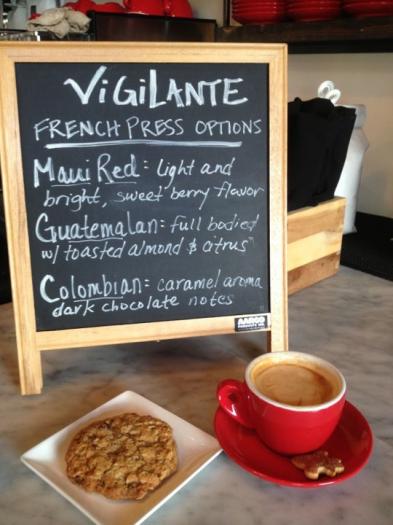 ViGiLANTE
FRENCH PRESS OPTIONS
Maui Red: light and
bright, sweet berry flavor
Guatemalan: full bodied
w/ toasted almond & citrus"
Colombian: caramel aroma
dark chocolate notes
AARCO